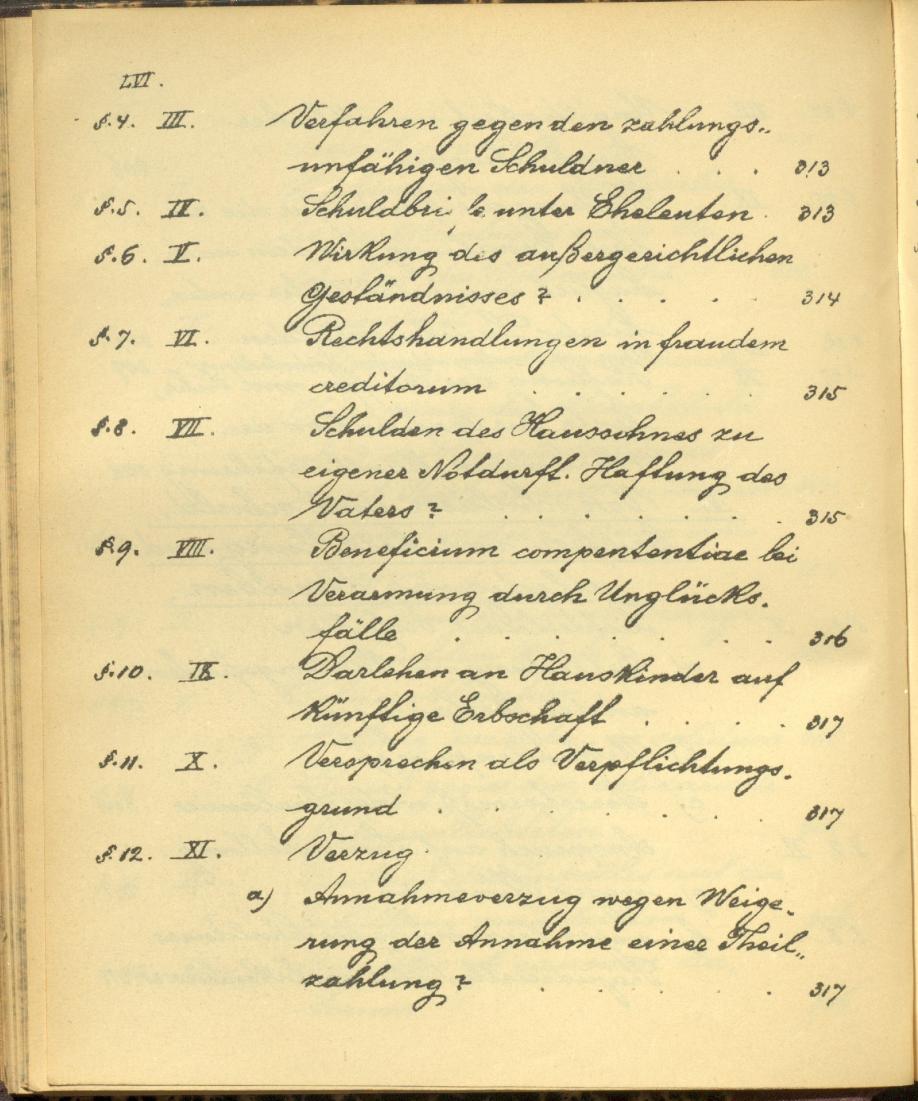 LVI.
§.4. III. Verfahren gegen den zahlungs„
unfähigen Schuldner . . . 313
§.5. IV. unter Eheleuten. 313
§.6. V. Wirkung des außergerichtlichen
Geständnisses? . . . . . 314
§.7. VI. Rechtshandlungen in fraudem
creditorum . . . . . . 315
§.8. VII. Schulden des Haussohnes zu
eigener Notdurft. Haftung des
Vaters? . . . . . . . 315
§.9. VIII. Beneficium compententiae bei
Verarmung durch Unglücks-
fälle . . . . . . . 316
§.10. IX. Darlehen an Hauskinder auf
künftige Erbschaft . . . . 317
§.11. X. Versprechen als Verpflichtungs-
grund . . . . . . . 317
§.12. XI. Verzug.
a) Annahmeverzug wegen Weige-
rung der Annahme einer Theil„
zahlung? . . . . . 317